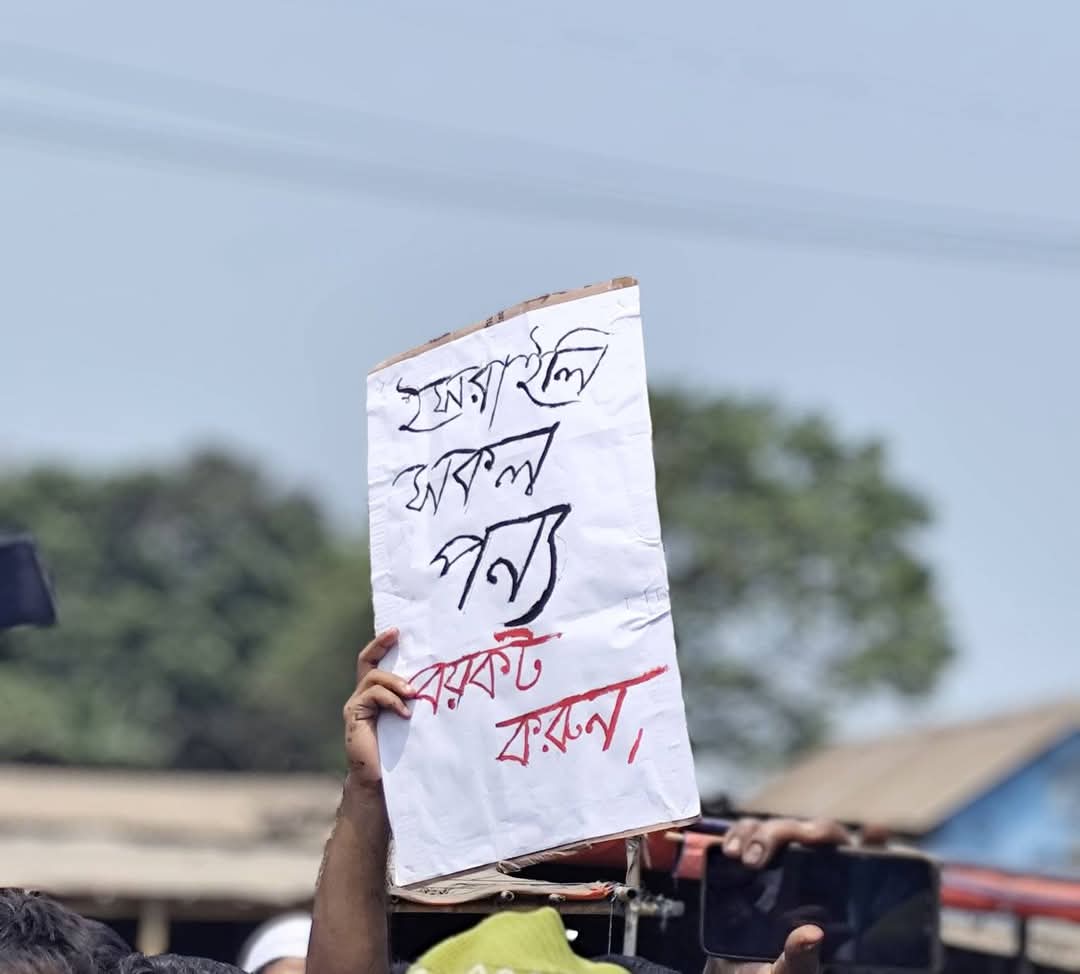 ইসরাইলি
সকল
পন্য
বয়কট
করুন,